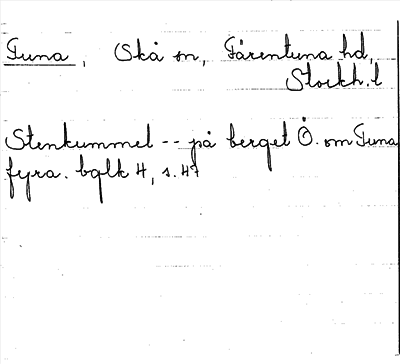 Tuna, Skå sn, Färentuna hd,
Stockh. l
Stenkummel -- på berget Ö. om Tuna
fyra. bglk 4, s. 47